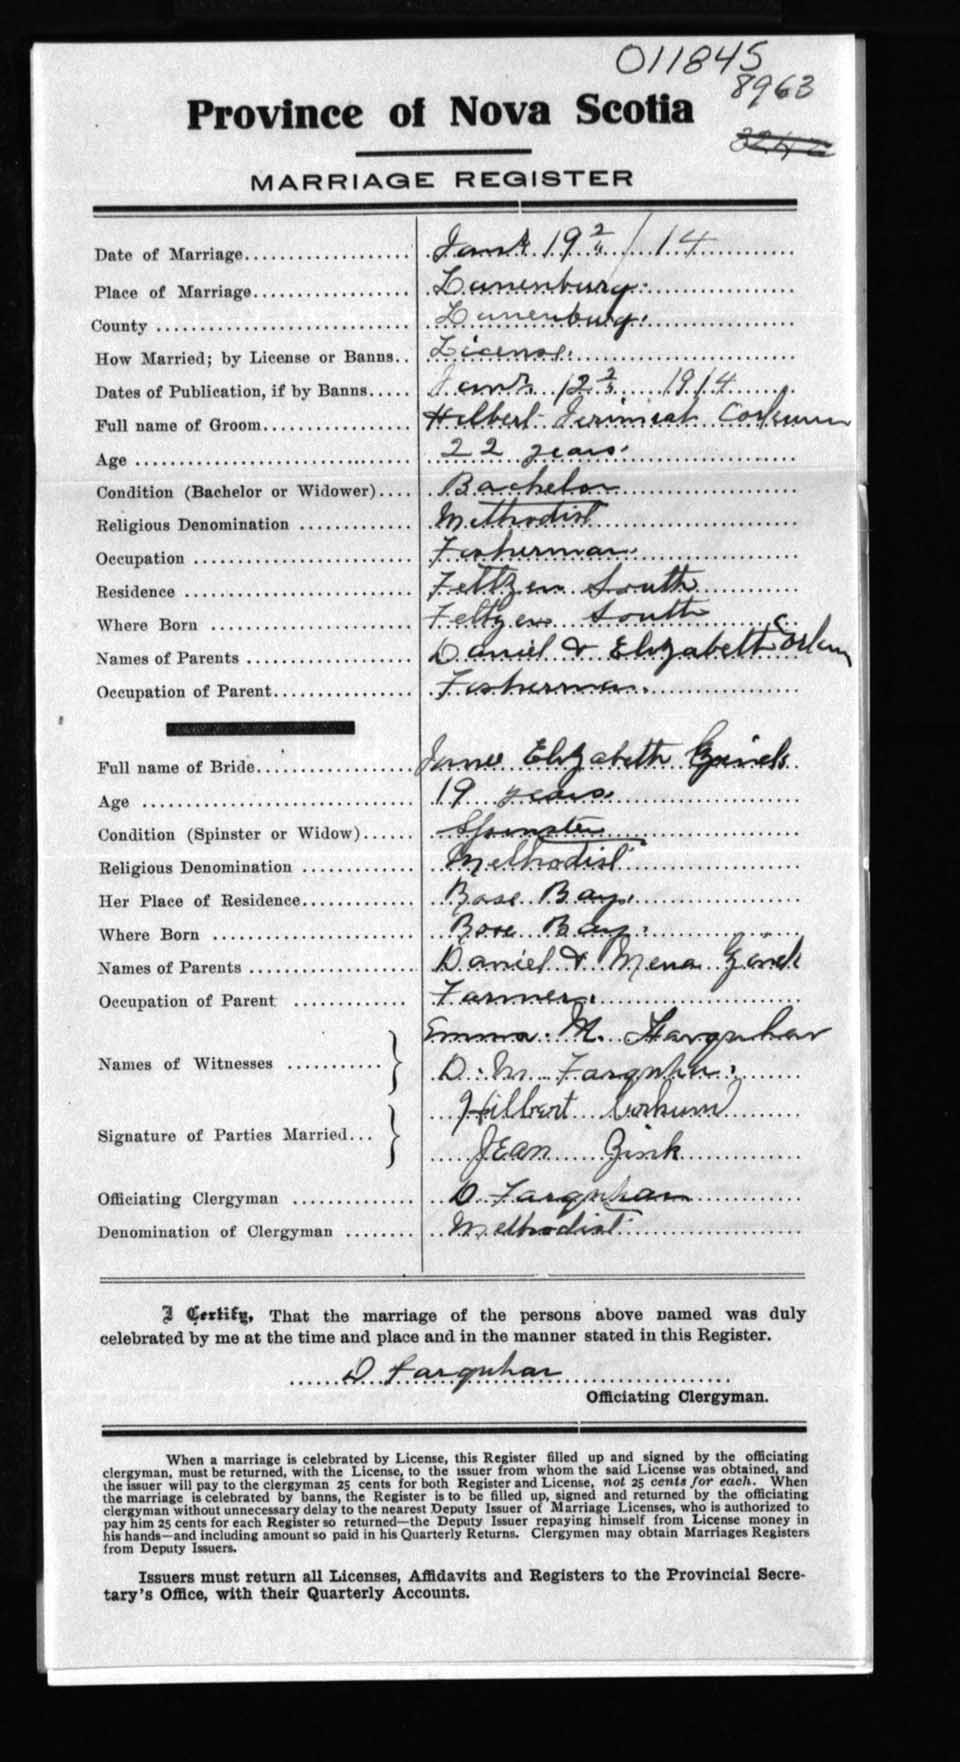 011845
8963
Province of Nova Scotia
MARRIAGE REGISTER
Date of Marriage.................... 19 / 14
Place of Marriage................... Lunenburg.
County ............................. Lunenburg.
How Married; by License or Banns.. License.
Dates of Publication, if by Banns..... 12 1914
Full name of Groom................. Hilbert Jerimiah Corkum
Age ............................... 22 years.
Condition (Bachelor or Widower).... Bachelor
Religious Denomination ............. Methodist
Occupation ......................... Fisherman.
Residence .......................... Feltzen South
Where Born ....................... Feltzen South
Names of Parents ................... Daniel & Elizabeth Corkum
Occupation of Parent................ Fisherman.
Full name of Bride.................. Elizabeth Zinck
Age ............................... 19 years.
Condition (Spinster or Widow)...... Spinster
Religious Denomination ............. Methodist
Her Place of Residence............. Rose Bay.
Where Born ....................... Rose Bay.
Names of Parents ................... Daniel & Mena Zinck
Occupation of Parent ............. Farmer.
Emma. M. Farquhar
Names of Witnesses ...........
D. M. Farquhar.
Hilbert Corkum
Signature of Parties Married...
JEan Zink
Officiating Clergyman .............. D Farquhar
Denomination of Clergyman ........ Methodist
I Certify, That the marriage of the persons above named was duly
celebrated by me at the time and place and in the manner stated in this Register.
D Farquhar
Officiating Clergyman.
When a marriage is celebrated by License, this Register filled up and signed by the officiating
clergyman, must be returned, with the License, to the issuer from whom the said License was obtained, and
the issuer will pay to the clergyman 25 cents for both Register and License, not 25 cents for each. When
the marriage is celebrated by banns, the Register is to be filled up, signed and returned by the officiating
clergyman without unnecessary delay to the nearest Deputy Issuer of Marriage Licenses, who is authorized to
pay him 25 cents for each Register so returned—the Deputy Issuer repaying himself from License money in
his hands—and including amount so paid in his Quarterly Returns. Clergymen may obtain Marriages Registers
from Deputy Issuers.
Issuers must return all Licenses, Affidavits and Registers to the Provincial Secre-
tary's Office, with their Quarterly Accounts.